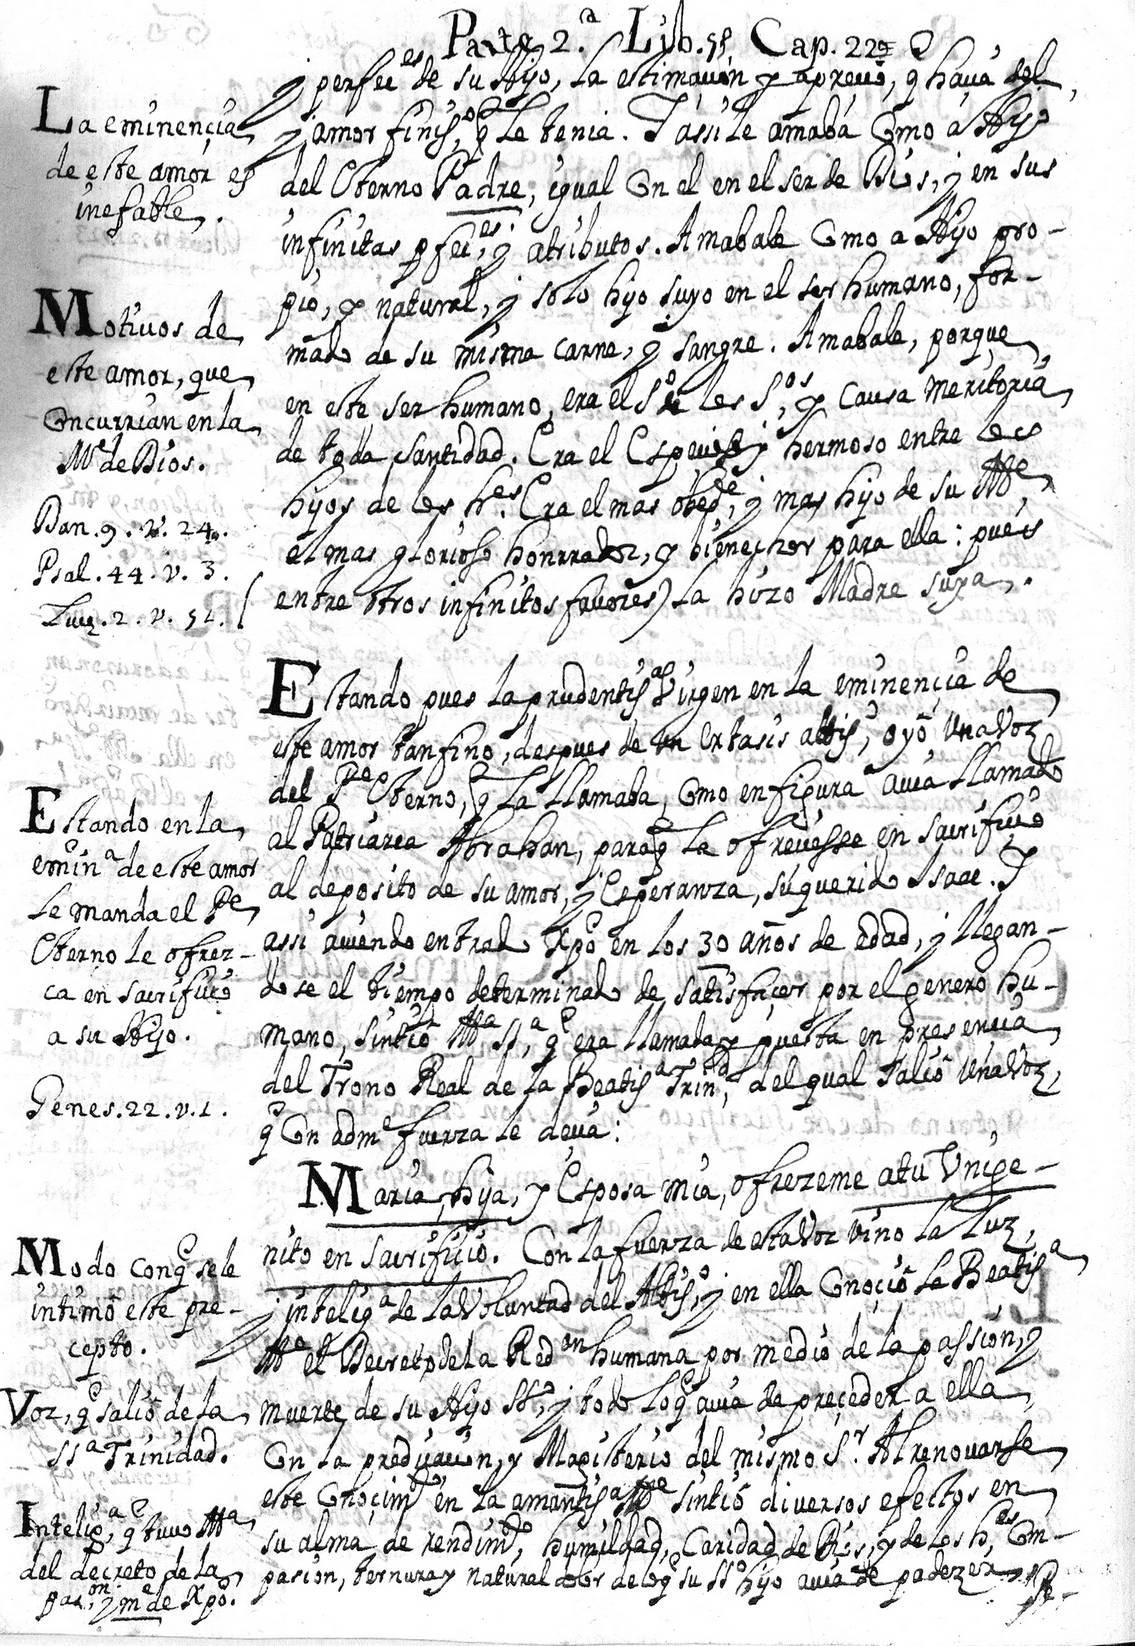 Parte 2.ª Lib. 5º Cap. 22º
y perfec.es de su Hijo, la estimaçión y apreçio, q haçia del,
y amor finis.º q Le tenia. Y assi le amaba Como a Hijo
del Eterno Padre, igual Con el en el ser de Dios, y en sus
infinitas perfeç.es y atributos. Amabale Como a Hijo pro-
pio, y natural, y solo hijo suyo en el ser humano, for-
mado de su misma carne, y sangre. Amabale, porque
en este ser humano, era el S.º de los S.os, y Causa meritoria
de toda santidad. Era el Espeçioso y hermoso entre los
hijos de los h.es Era el mas obed.te, y mas hijo de su M.e,
el mas glorioso honrrador, y bienechor para ella: pues
(entre otros infinitos favores) La hizo Madre suya.
La eminençia
de este amor es
inefable.
Motivos de
este amor, que
Concurrian en la
M.e de Dios.
Dan. 9. v. 24.
Psal. 44. v. 3.
Luc. 2. v. 51.
Estando pues la prudentis.ª Virgen en la eminençia de
este amor tan fino, despues de un Extasis altis.º, oyó una Voz
del P.e Eterno, q La Llamaba, Como en figura avia Llamado
al Patriarca Abrahan, para q Le ofreçiesse en sacrifiçio
al deposito de su amor, y Esperanza, su querido Isaac. Y
assi aviendo entrado Xpo en los 30 años de edad, y llegan-
dose el tiempo determinado de satisfaçer por el genero hu-
mano, sintió M.ª SS.ª q era llamada y puesta en presençia
del Trono Real de la Beatis.ª Trin.d, del qual Salió una Voz,
q Con adm.e fuerza le deçia:
Estando en la
emin.ª de este amor
Le manda el P.e
Eterno le ofrez-
ca en sacrifiçio
a su Hijo.
Genes. 22. v. 1.
Maria, hija, y Esposa mia, ofrezeme a tu Unige-
nito en sacrifiçio. Con la fuerza de esta Voz vino la Luz,
y intelig.ª de la Voluntad del Altis.º, y en ella Conoçió La Beatis.ª
M.e el Decreto de la Red.on humana por medio de la passion, y
muerte de su Hijo SS.º, y todo Lo q avia de preceder a ella
Con la prediçaçion, y Magisterio del mismo S.r Al renovarse
este Conoçim.to en la amantis.ª M.e sintió diversos efectos en
su alma de rendim.to, humildad, Caridad de Dios, y de los h.es, Com-
pasion, ternura y natural dolor de lo q su SS.º hijo avia de padezer
Modo con q se le
intimó este pre-
cepto.
Voz, q salió de la
SS.ª Trinidad.
Intelig.ª, q tuvo M.ª
del decreto de la
pas.on, y m.e de Xpo.